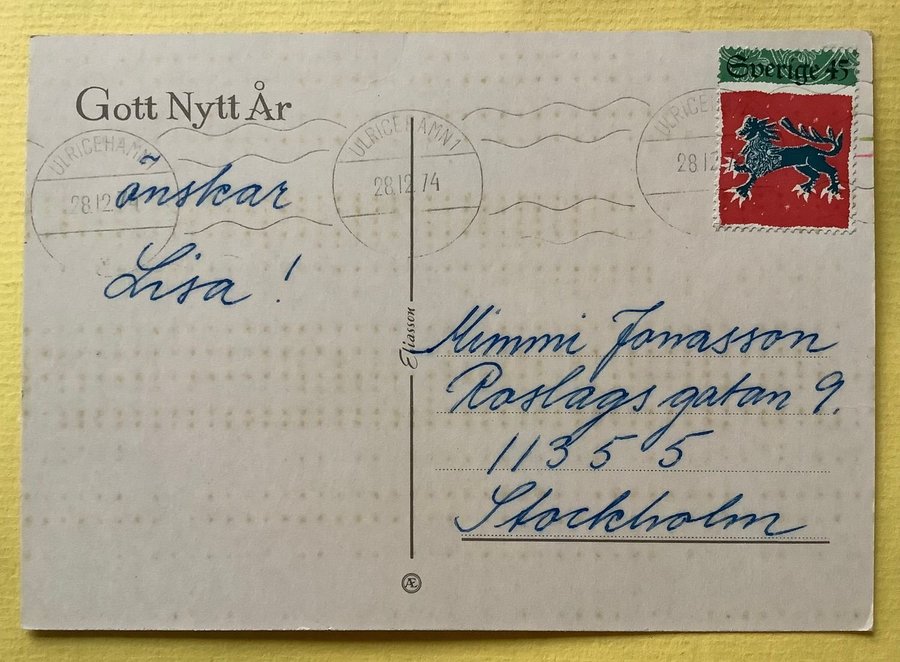 Gott Nytt År
önskar
Lisa !
Sverige 45
ULRICEHAMN 1
28.12.74
ULRICEHAMN 1
28.12.74
ULRICEHAMN
28.12.74
Eliasson
Mimmi Jonasson
Roslagsgatan 9.
11355
Stockholm
Æ